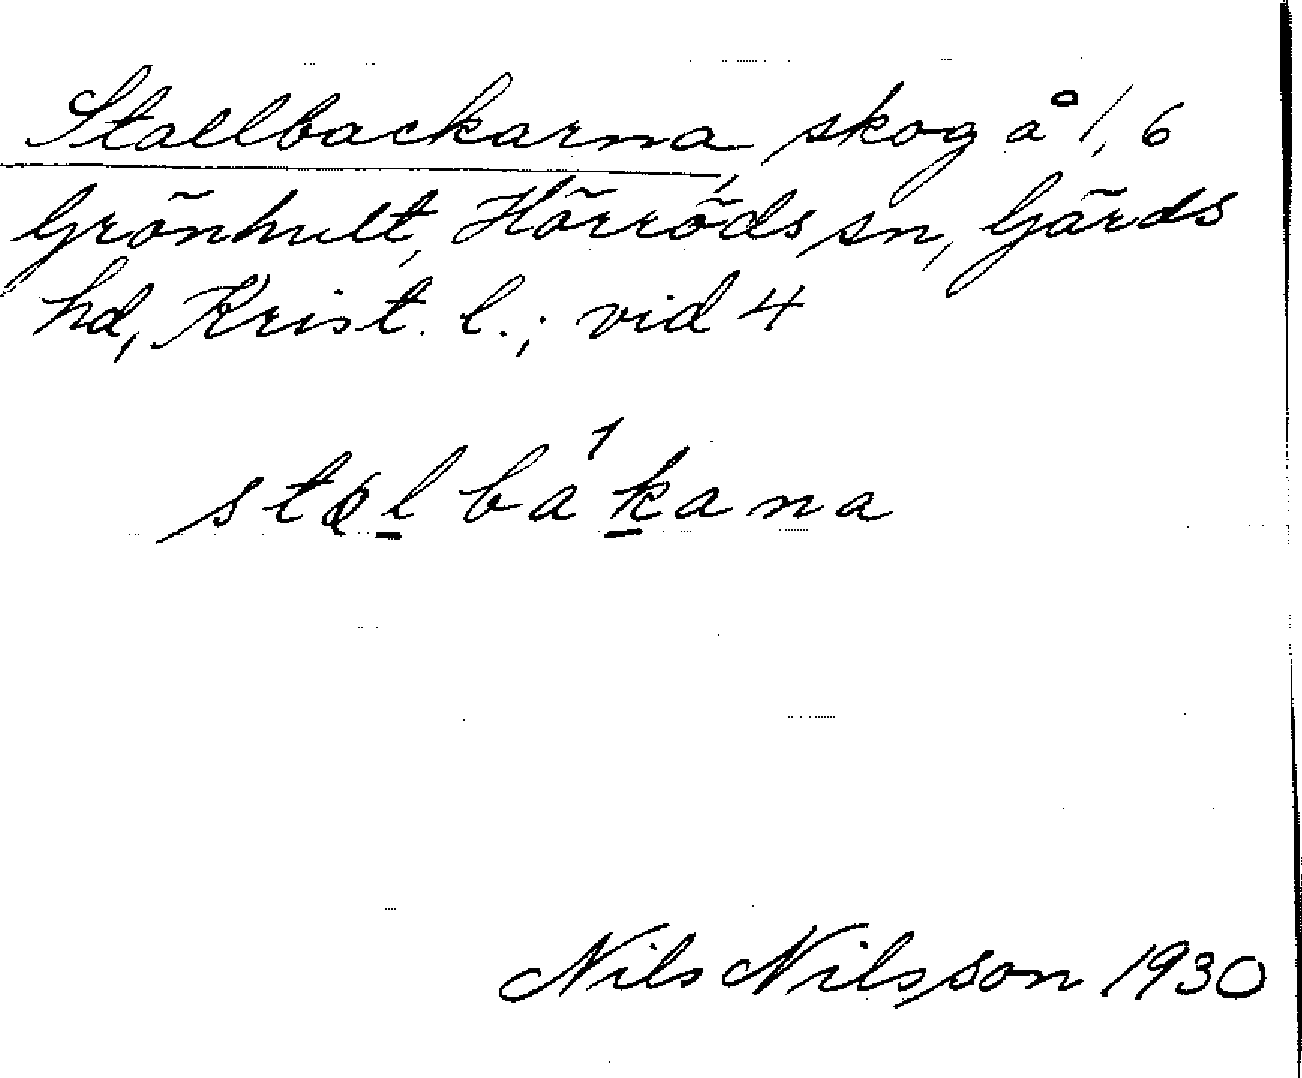 Stallbackarna, skog å 1, 6
Grönhult, Hörröds sn, Gärds
hd, Krist. l.; vid 4
Nils Nilsson 1930